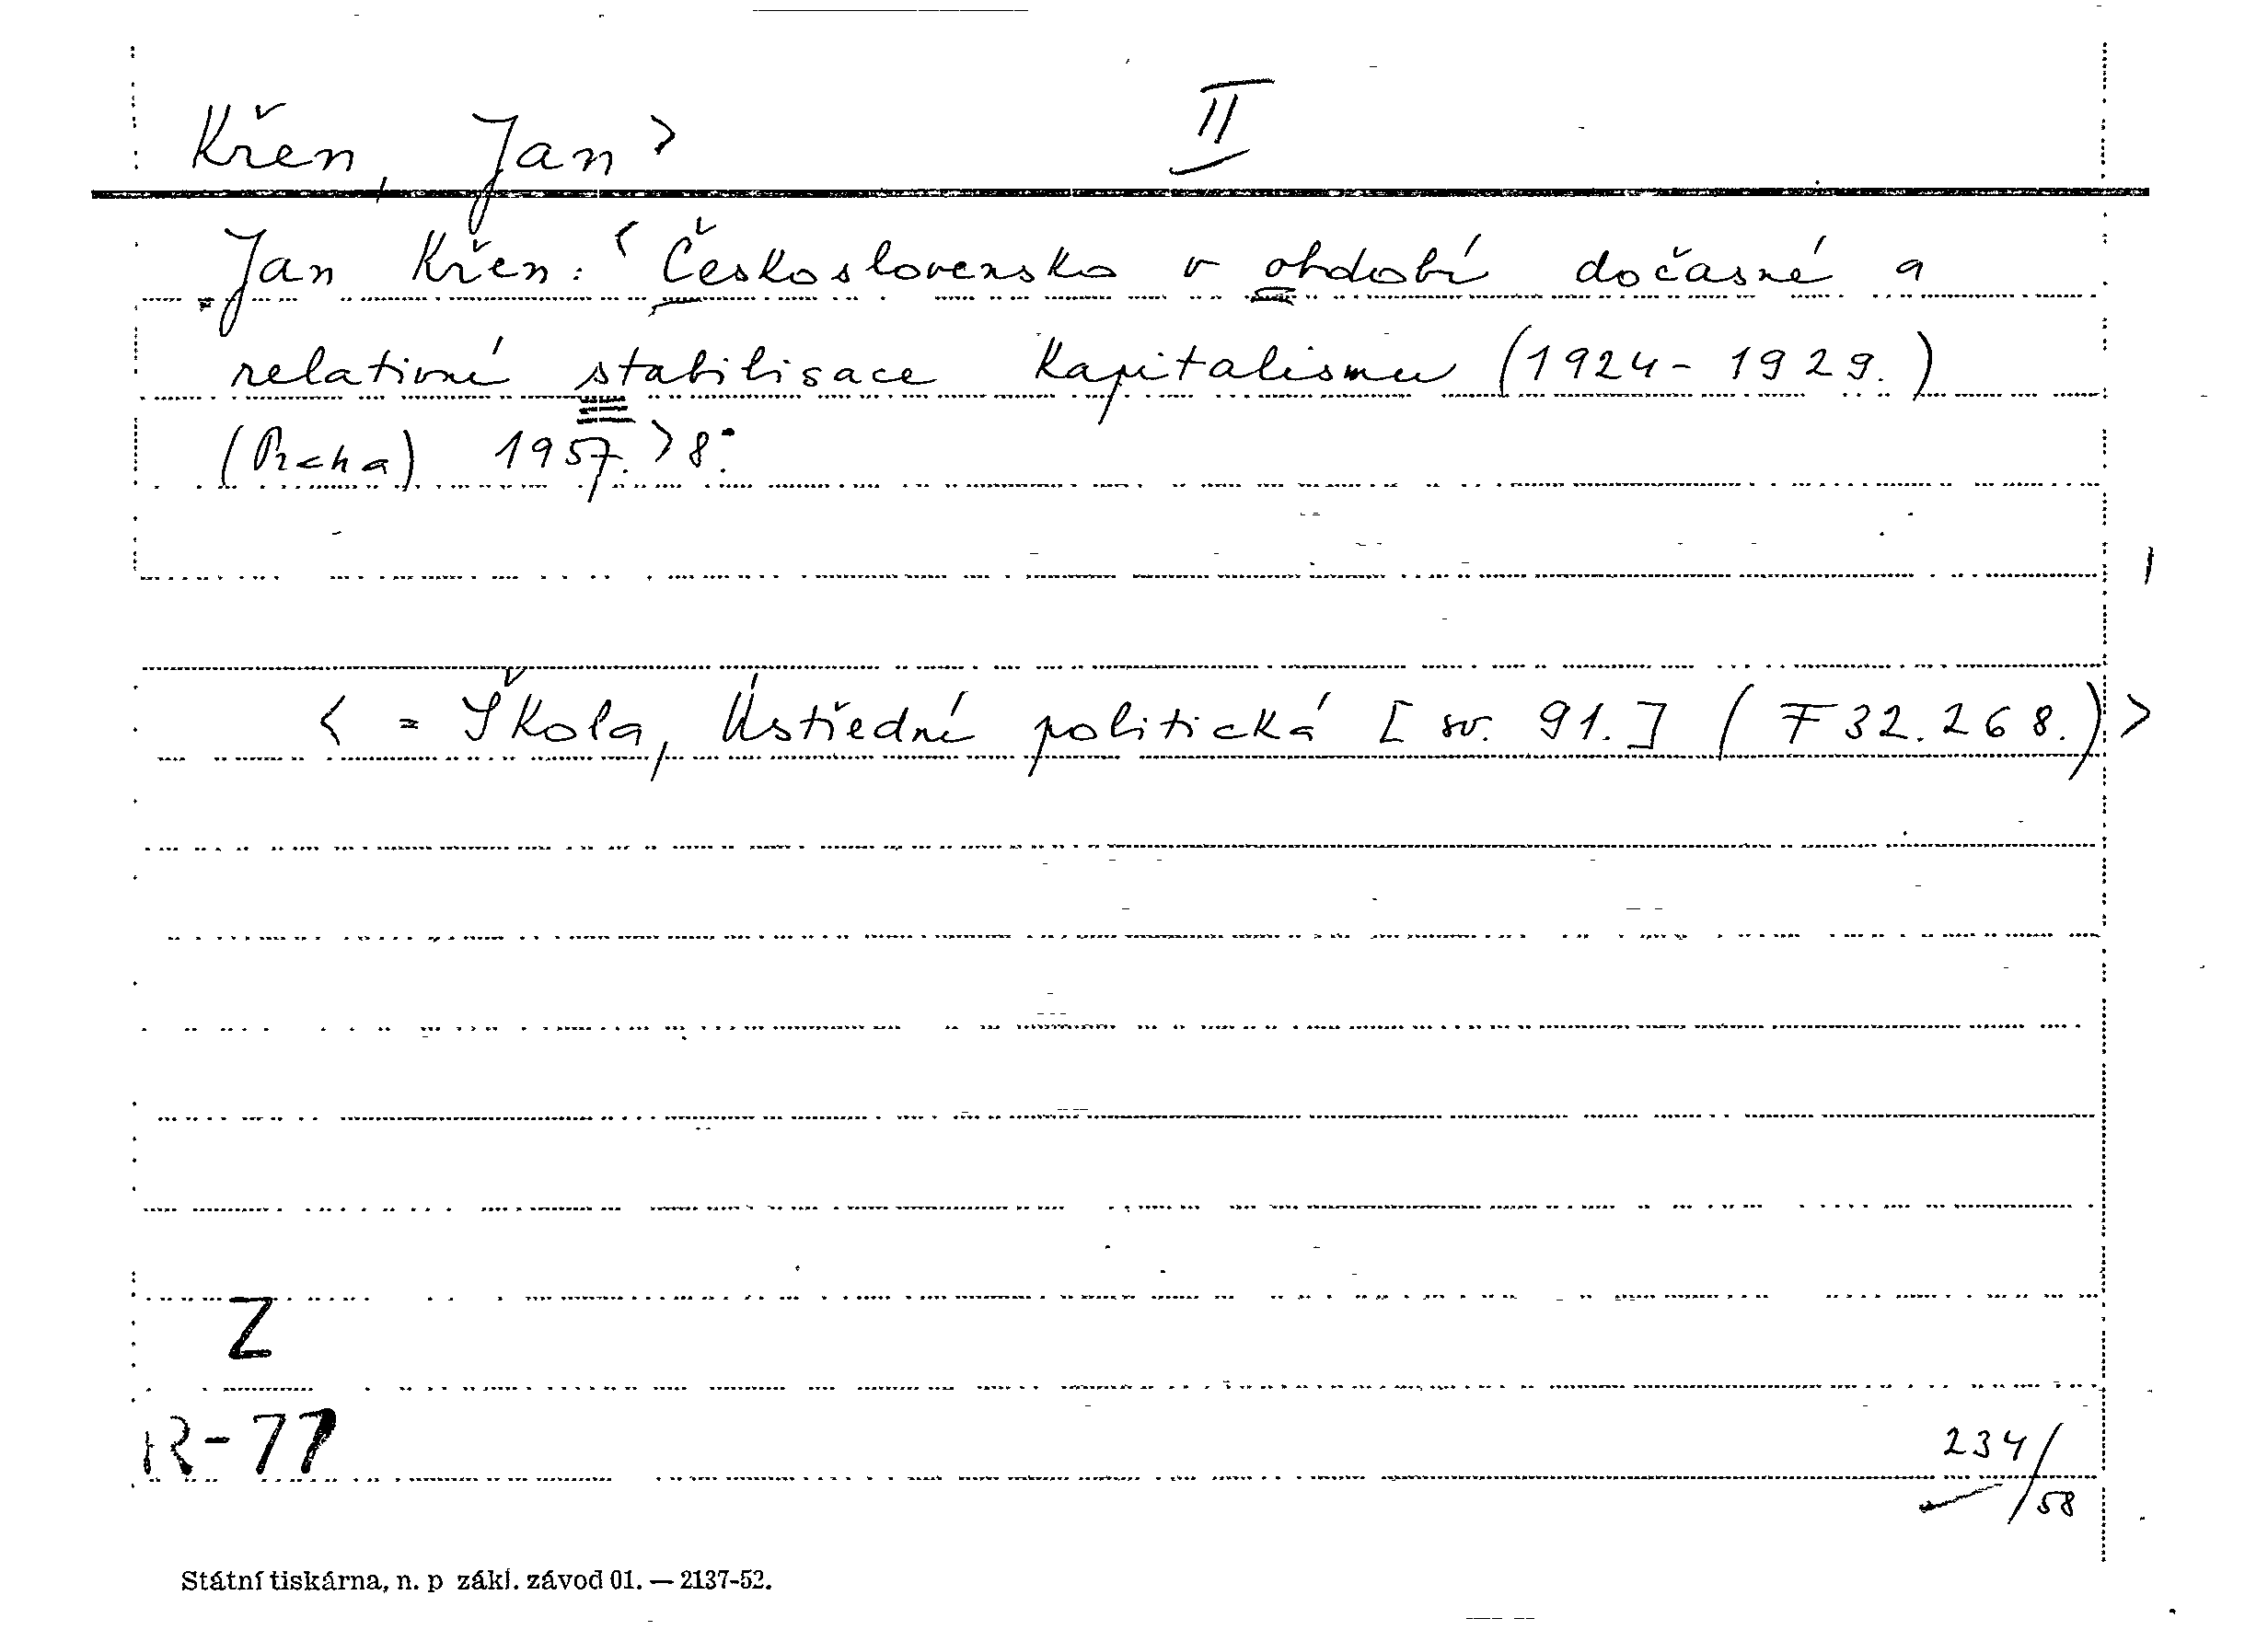 Křen, Jan> II
Jan Křen: <Československo v období dočasné a
relativní stabilisace kapitalismu (1924-1929.)
(Praha) 1957.> 8°.
< = Škola, Ústřední politická [sv. 91.] (F 32.268.)>
Z
R-77
234/58
Státní tiskárna, n. p. zákl. závod 01. — 2137-52.